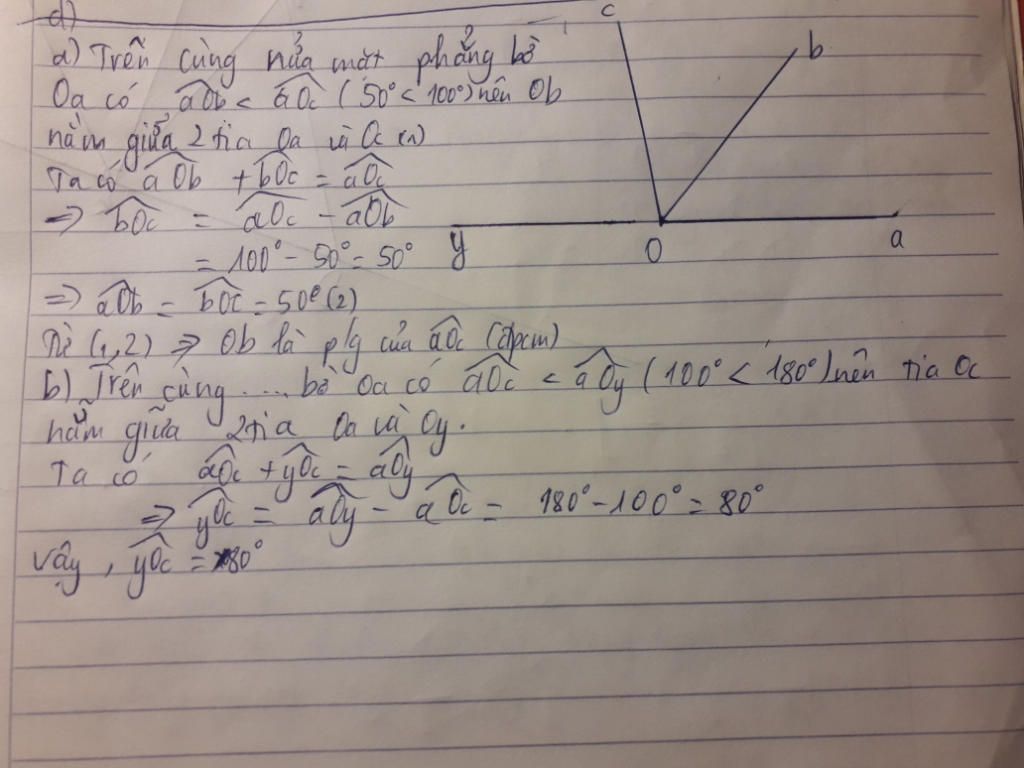 d)
a) Trên cùng nửa mặt phẳng bờ
Oa có aOb < aOc (50° < 100°) nên Ob
nằm giữa 2 tia Oa và Oc (1)
Ta có aOb + bOc = aOc
=> bOc = aOc - aOb
= 100° - 50° = 50°
=> aOb = bOc = 50° (2)
Từ (1,2) => Ob là p/g của aOc (đpcm)
b) Trên cùng .... bờ Oa có aOc < aOy (100° < 180°) nên tia Oc
nằm giữa 2 tia Oa và Oy.
Ta có aOc + yOc = aOy
=> yOc = aOy - aOc = 180° - 100° = 80°
Vậy, yOc = 80°
c
b
y
O
a